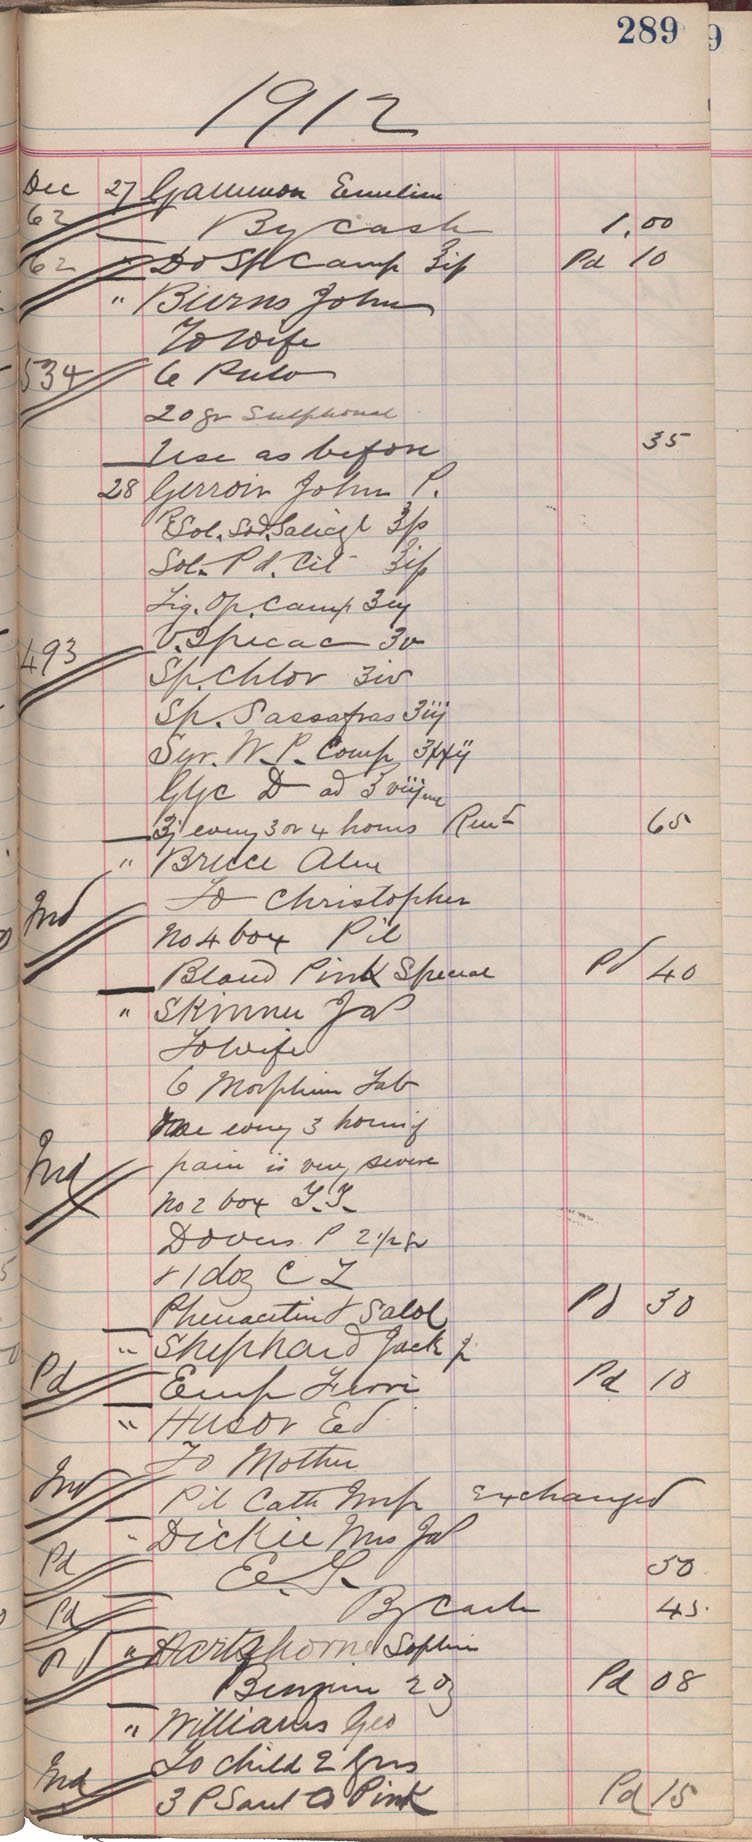 289
1912
Dec 27 Gammon Emeline
62 By Cash 1.00
62 " Do Sp Camp ʒip Pd 10
" Burns John
To Wife
534 6 Pulv
20 gr Sulphonal
Use as before 35
28 Gerroir John P.
Sol. Sod. Salicyl ʒp
Sol. Pd. Cit ʒip
Tig. Op. Camp
493 V. Ipecac ʒv
Sp. Chlor ʒiv
Sp. Sassafras ʒiij
Syr. W. P. Comp
Glyc D ad ʒ viij
ʒj every 3 or 4 hours 65
" Bruce Alex
Ind To Christopher
No 4 box Pil
Blaud Pink Special Pd 40
" Skinner Jas
To Wife
6 Morphine Tab
One every 3 hours if
Ind pain is very severe
No 2 box T.T.
Dovers P 2 1/2 gr
& 1 doz C T
Phenacetin & Salol Pd 30
" Shephard Jack
Pd Emp Ferri Pd 10
" Husor Ed
To Mother
Ind Pil Cath Imp Exchanged
" Dickie Mrs Jas
Pd E. S. 50
Pd By Cash 45
Pd " Hartshorne Sophie
Benzine 2 oz Pd 08
" Williams Geo
To child 2 yrs
Ind 3 P Sant Pink Pd 15